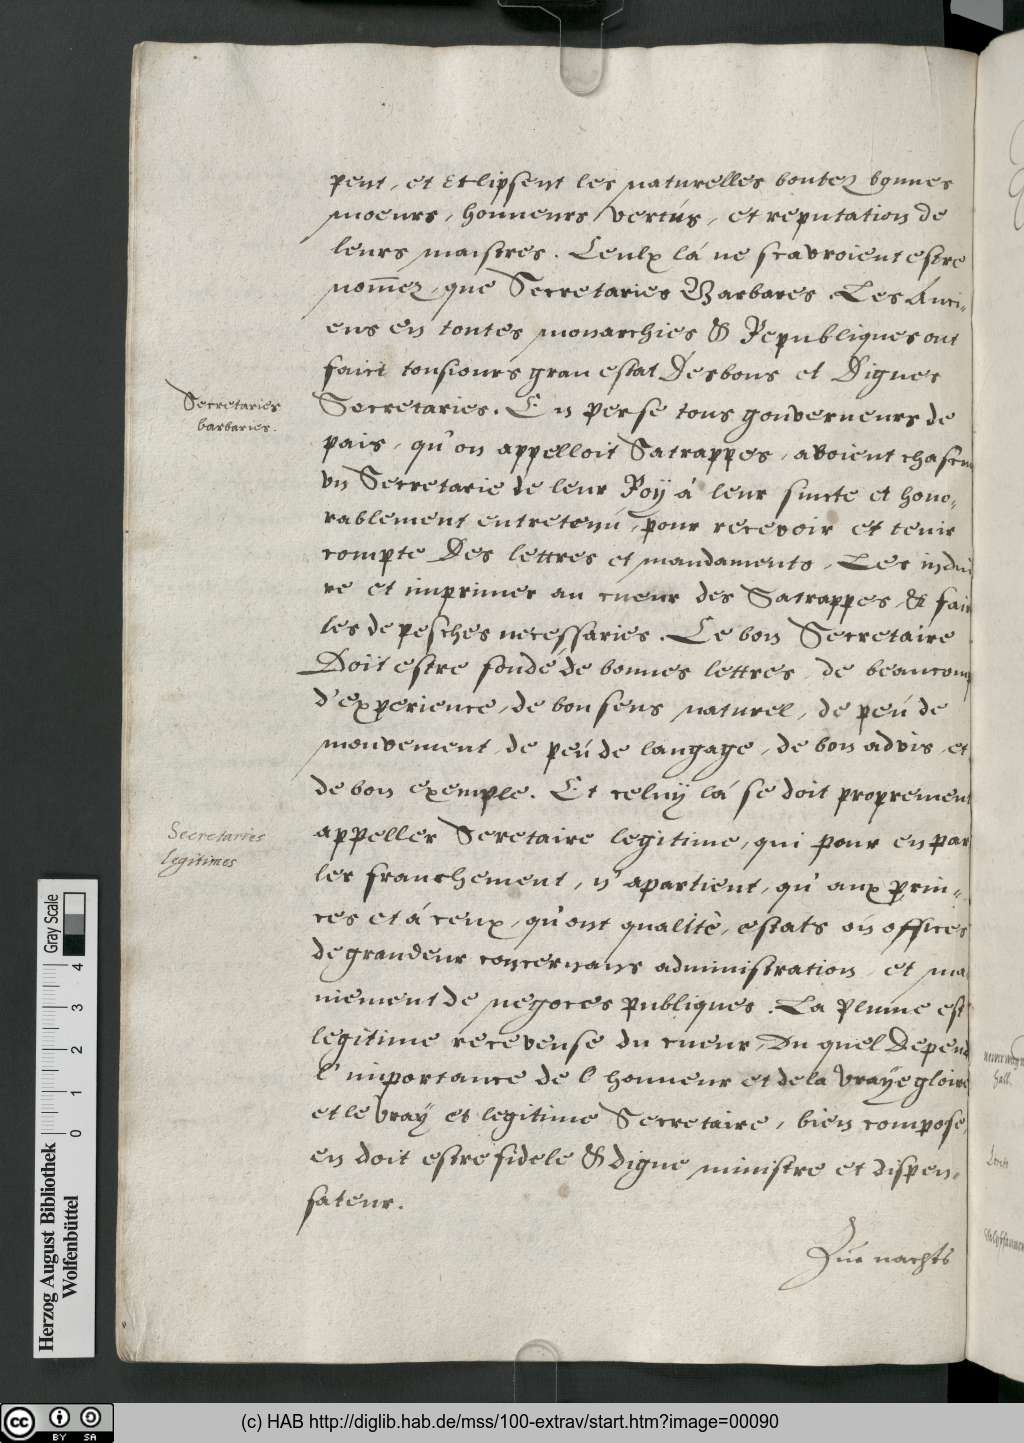 pent, et Etlipsent les naturelles boutez bonnes
moeurs, honneurs, vertús, et reputation de
leurs maistres. Ceulx lá ne scavroient estre
nom̄ez, que Secretaries Barbares. Les Anci=
ens en toutes monarchies & Republiques ont
faict tousiours gran estat Des bons et Dignes
Secretaries
barbaries.
Secretaries. En perse tous gouverneurs de
pais, qu'on appelloit Satrappes, avoient chascun
vn Secretarie de leur Roÿ á leur sincte et hono=
rablement entretenú, pour recevoir et tenir
compte Des lettres et mandaments, Les indui
re et imprimer au cueur des Satrappes, & fair
les depesches necessaries. Ce bon Secretaire
Doit estre fondé de bonnes lettres, de beaucoup
d'experience, de bon sens naturel, de peú de
mouvement, de peú de langage, de bon advis, et
de bon exemple. Et celuÿ lá se doit proprement
Secretaries
legitimes
appeller Seretaire legitime, qui pour en par
ler franchement, n'apartient, qu'aux prin=
ces et á ceux, qu'ont qualitè, estats oú offices
de grandeur concernans administration, et ma
niement de negoces publiques. La plume est
legitime receveuse du cueur, Du quel Depend
l'importance de l'honneur et de la vraÿe gloire
et le vraÿ et legitime Secretaire, bien compose,
en doit estre fidele & digne ministre et dispen=
sateur.
Zue nachts
Herzog August Bibliothek
Wolfenbüttel
0 1 2 3 4
Gray Scale
cc BY SA
(c) HAB http://diglib.hab.de/mss/100-extrav/start.htm?image=00090